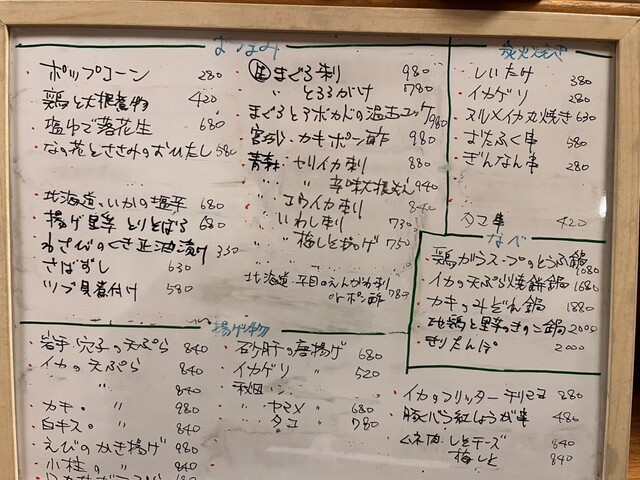 おつまみ
ポップコーン 280
鶏と大根煮物 420
塩ゆで落花生 680
なの花とささみのおひたし 580
北海道、いかの塩辛 680
揚げ里芋とりそぼろ 680
わさびのくき正油漬け 350
さばずし 630
ツブ貝煮付け 580
生まぐろ刺 980
〃 とろろがけ 780
まぐろとアボカドの温玉ユッケ 980
宮城、カキポン酢 980
青森、ヤリイカ刺 880
〃 〃 辛味大根おろし 940
〃 コウイカ刺 840
〃 いわし刺 730
〃 〃 梅しと揚げ 750
北海道、平目のえんがわ刺
orポン酢 780
炭火焼き
しいたけ 380
イカゲソ 280
スルメイカ丸焼き 630
おたふく串 580
ぎんなん串 280
タマ串 420
なべ
鶏ガラスープのとうふ鍋 1080
イカの天ぷら焼餅鍋 1680
カキのみぞれ鍋 1880
地鶏と野菜きのこ鍋 2000
きりたんぽ 2000
揚げ物
岩手、穴子の天ぷら 840
イカの天ぷら 840
〃 840
カキ 〃 〃 980
白キス 〃 840
えびのかき揚げ 980
小柱の 〃 〃 840
砂肝の唐揚げ 680
イカゲソ 〃 520
秋田
〃 ヤマメ 〃 680
〃 タコ 〃 780
イカのフリッターチリマヨ 880
豚バラ紅しょうが串 480
ムネ肉しとチーズ 840
梅しと 840